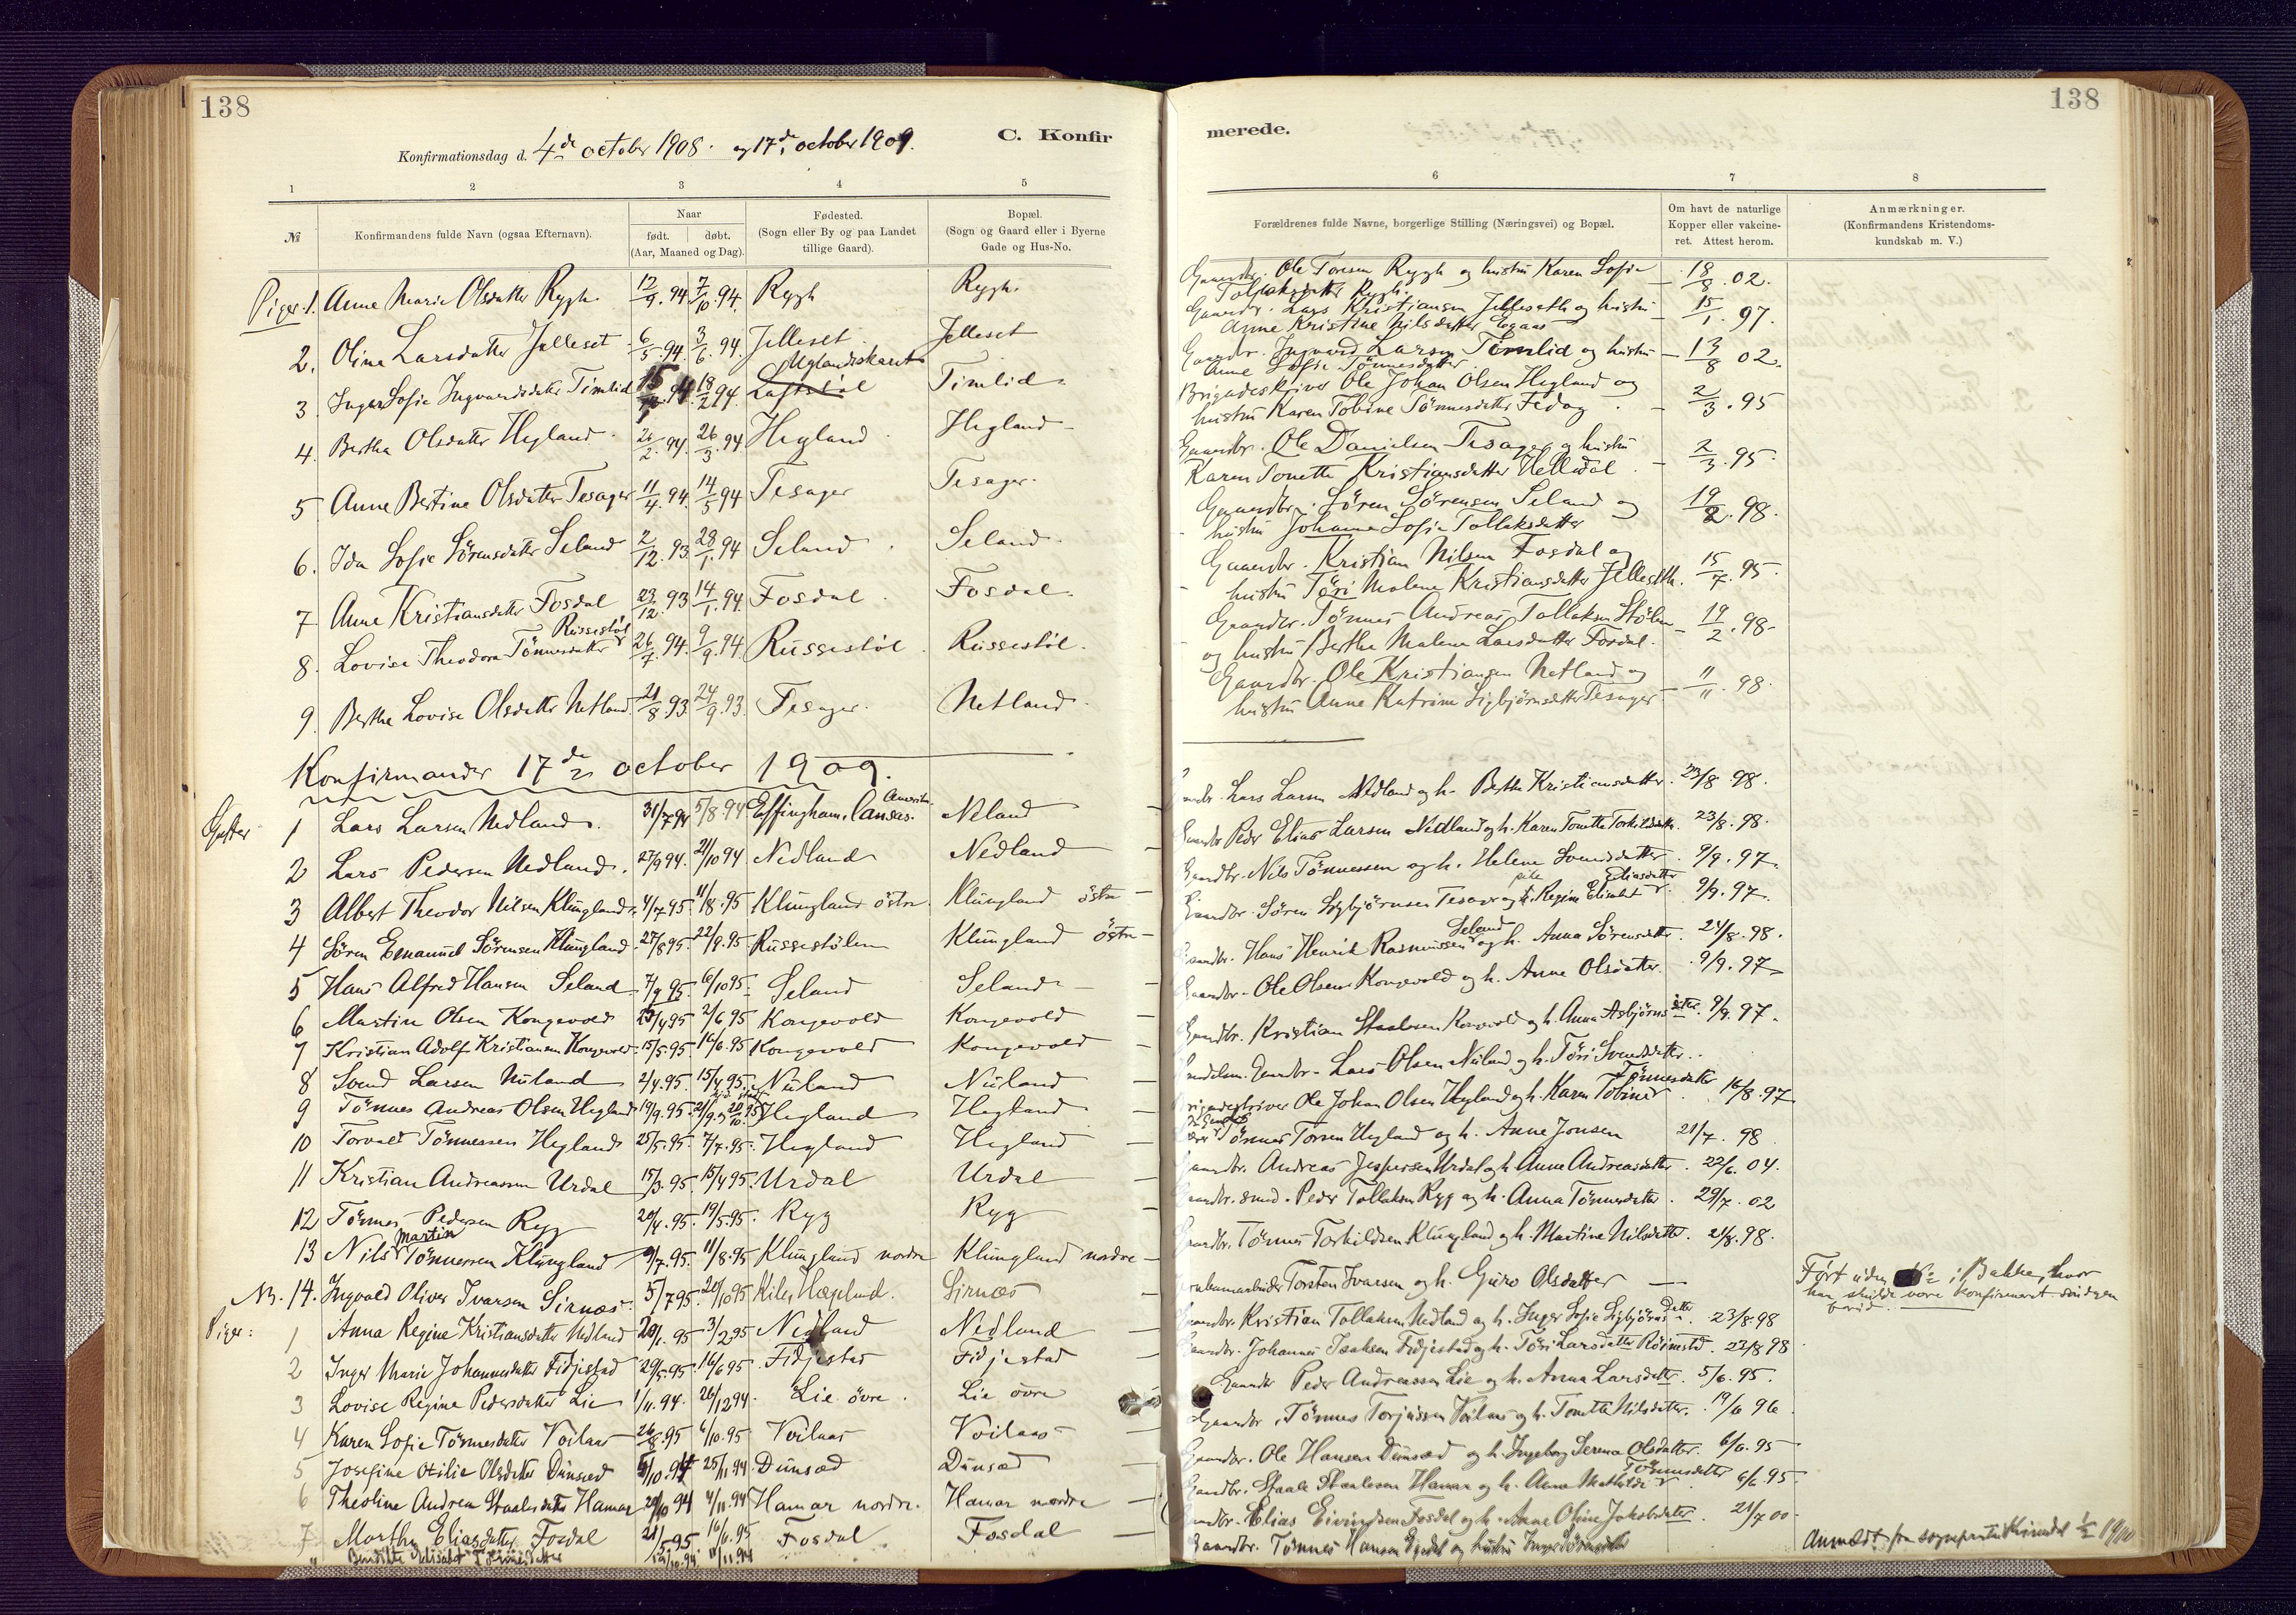 138
Konfirmationsdag d. 4de october 1908. og 17de october 1909.
C. Konfir
1 2 3 4 5
№
Konfirmandens fulde Navn (ogsaa Efternavn).
Naar
født. døbt.
(Aar, Maaned og Dag).
Fødested.
(Sogn eller By og paa Landet
tillige Gaard).
Bopæl.
(Sogn og Gaard eller i Byerne
Gade og Hus-No.
Piger 1. Anne Marie Olsdatter Rygh. 12/9.94 7/10.94. Rygh Rygh.
2. Oline Larsdatter Jelleset 6/5.94. 3/6.94. Jelleset Jelleset
3. Inger Sofie Ingvardsdatter Timlid 94 18/2 94. Timlid
4. Berthe Olsdatter Hegland 94. 26/3.94 Hegland Hegland
5 Anne Bertine Olsdatter Tesager 11/4.94. 14/5 94 Tesager Tesager.
6. Ida Sofie Sørensdatter Seland 2/12.93 28/1.94 Seland Seland
7 Anne Kristiansdatter Fosdal 29/12.93 14/1.94. Fosdal Fosdal.
Russestøl
8. Lovise Theodora Tønnesdatter 26/7.94. 9/9.94. Russestøl Russestøl.
9. Berthe Lovise Olsdatter Netland 21/8.93 24/9.93. Tesager. Netland.
Konfirmander 17de october 1909.
Gutter 1 Lars Larsen Nedland. 31/7 94 5/8.94 Effingham, Cansas. Amerika Neland
2 Lars Pedersen Nedland. 27/9 94. 21/10 94 Nedland Nedland
3 Albert Theodor Nilsen Klungland. 4/7.95. 11/8.95 Klungland östre Klungland östre
4 Søren Emanuel Sörensen Klungland. 27/8 95. 22/9.95 Russestølen Klungland östre
5 Hans Alfred Hansen Seland 7/9 95. 6/10 95 Seland Seland
6 Martin Olsen Kongevold 2/6 95 Kongevold Kongevold
7 Kristian Adolf Kristiansen Kongevold. 15/5.95. 16/6.95 Kongevold Kongevold
8 Svend Larsen Nuland 2/4.95. 15/4.95. Nuland Nuland
9 Tønnes Andreas Olsen Hegland 19/9.95. Hegland Hegland
10 Torvald Tönnessen Hegland 25/5.95. 7/7.95. Hegland Hegland
11 Kristian Andreassen Urdal 17/3.95. 15/4 95. Urdal Urdal
12 Tönnes Pedersen Ryg 20/4.95. 19/5.95. Ryg Ryg
13 Nils Martin Tönnessen Klungland 9/7.95. 11/8.95 Klungland nordre Klungland nordre
14. Ingvald Oliver Ivarsen Sirnæs. 5/7 95. 20/10 95 Sirnæs
Piger: 1 Anna Regine Kristiansdatter Nedland 95 3/2 95 Nedland Nedland
2 Inger Marie Johannesdatter Fidjestad 29/5.95. 16/6 95 Fidjestad Fidjestad
3 Lovise Regine Pedersdatter Lie 1/11.94. 26/12 94. Lie övre. Lie övre
4 Karen Sofie Tönnesdatter Voilaas 26/8.95 6/10.95 Voilaas Voilaas
5 Josefine Otilie Olsdatter Dunsæd 25/11.94. Dunsæd Dunsæd
6 Theoline Andrea Staalesdatter Hamar 94 4/11.94 Hamar nordre. Hamar nordre
7 Marthe Eliasdatter Fosdal 21/5.95 16/6.95 Fosdal Fosdal
" Bendikte Elisabet Tönnesdatter 11/11.94
138
merede.
6 7 8
Forældrenes fulde Navne, borgerlige Stilling (Næringsvei) og Bopæl.
Om havt de naturlige
Kopper eller vakcine-
ret. Attest herom.
Anmærkninger.
(Konfirmandens Kristendoms-
kundskab m. V.)
Gaardbr. Ole Toresen Rygh og hustru Karen Sofie
Tollaksdatter Rygh. 18/8.02.
Gaardbr. Lars Kristiansen Jelleseth og hustru
Anne Kristine Nilsdatter 15/1.97.
Gaardbr. Ingvard Larsen Timlid og hustru
Anne Sofie Tönnesdatter 13/8 02.
Brigadeskriver Ole Johan Olsen Hegland og
hustru Karen Tobine Tönnesdatter Fedog 2/3.95
Gaardbr. Ole Danielsen Tesager og hustru
Karen Tonette Kristiansdatter Helledal 2/3.95.
Gaardbr. Sören Sörensen Seland og
hustru Johanne Sofie Tollaksdatter 19/2.98.
Gaardbr. Kristian Nilsen Fosdal og
hustru Töri Malene Kristiansdatter Jelleseth. 15/7.95.
Gaardbr. Tönnes Andreas Tollaksen Stölen
og hustru Berthe Malene Larsdatter Fosdal. 19/2.98.
Gaardbr. Ole Kristiansen Netland og
hustru Anne Katrine Sigbjörnsdatter Tesager 11/11.98.
Gaardbr. Lars Larsen Nedland og h. Berthe Kristiansdatter. 23/8.98.
Gaardbr Peder Elias Larsen Nedland og h. Karen Tonette Torkildsdatter. 23/8.98.
Gaardbr. Nils Tönnessen og h. Helene Svendsdatter. 9/9.97.
Gaardbr. Sören Sigbjörnsen Tesager og pike Regine Elisabet Eliasdatter. 9/9.97.
Gaardbr. Hans Henrik Rasmussen Seland og h. Anna Sörensdatter. 24/8.98.
Gaardbr. Ole Olsen Kongevold og h. Anne Olsdatter. 9/9.97
Gaardbr. Kristian Staalesen Kongevold og h. Anna Asbjörnsdatter. 9/9.97.
Gaardbr. Lars Olsen Nuland og h. Töri Svendsdatter.
Brigadeskriver Ole Johan Olsen Hegland og h. Karen Tobine Tönnesdatter 16/8.97
Tönnes Torsen Hegland og h. Anne Jonsen 21/7.98.
Gaardbr. Andreas Jespersen Urdal og h. Anne Andreasdatter. 22/6.04.
Gaardbr. smed. Peder Tollaksen Ryg og h. Anna Tönnesdatter. 29/7.02
Gaardbr. Tönnes Torkildsen Klungland og h. Martine Nilsdatter. 21/8.98.
Torsten Ivarsen og h. Guro Olsdatter —
Ført uden № i Bakke, hvor
han skulde være konfirmeret
Gaardbr. Kristian Tollaksen Nedland og h. Inger Sofie Sigbjörnsdatter. 23/8.98
Gaardbr. Johannes Isaksen Fidjestad og h. Töri Larsdatter 23/8 98
Gaardbr Peder Andreassen Lie og h. Anna Larsdatter. 5/6.95.
Gaardbr. Tönnes Torjussen Voilaas og h. Tonette Nilsdatter. 19/6 96
Gaardbr. Ole Hansen Dunsæd og h. Ingeborg Serena Olsdatter. 6/6.95
Gaardbr. Staale Staalesen Hamar og h. Anne Mathilde Tönnesdatter 6/6.95.
Gaardbr. Elias Eivindsen Fosdal og h. Anne Oline Jakobsdatter. 21/7 00
Gaardbr. Tönnes Hansen og hustru
Anmeldt fra sogneprest 19/10